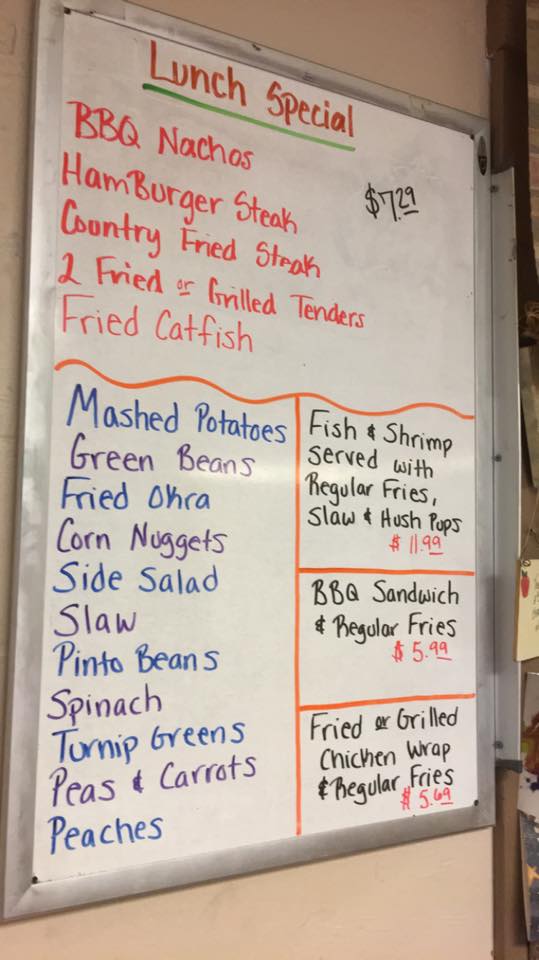 Lunch Special
BBQ Nachos
$7.29
HamBurger Steak
Country Fried Steak
2 Fried or Grilled Tenders
Fried Catfish
Mashed Potatoes
Green Beans
Fried Okra
Corn Nuggets
Side Salad
Slaw
Pinto Beans
Spinach
Turnip Greens
Peas & Carrots
Peaches
Fish & Shrimp
Served with
Regular Fries,
Slaw & Hush Pups
$ 11.99
BBQ Sandwich
& Regular Fries
$ 5.99
Fried or Grilled
Chicken Wrap
& Regular Fries
$ 5.69